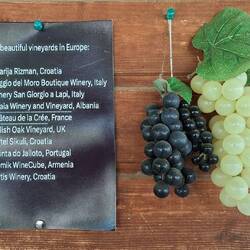 beautiful vineyards in Europe:
arija Rizman, Croatia
ggio del Moro Boutique Winery, Italy
nery San Giorgio a Lapi, Italy
aia Winery and Vineyard, Albania
âteau de la Crée, France
lish Oak Vineyard, UK
tel Sikuli, Croatia
inta do Jalloto, Portugal
mik WineCube, Armenia
rtis Winery, Croatia